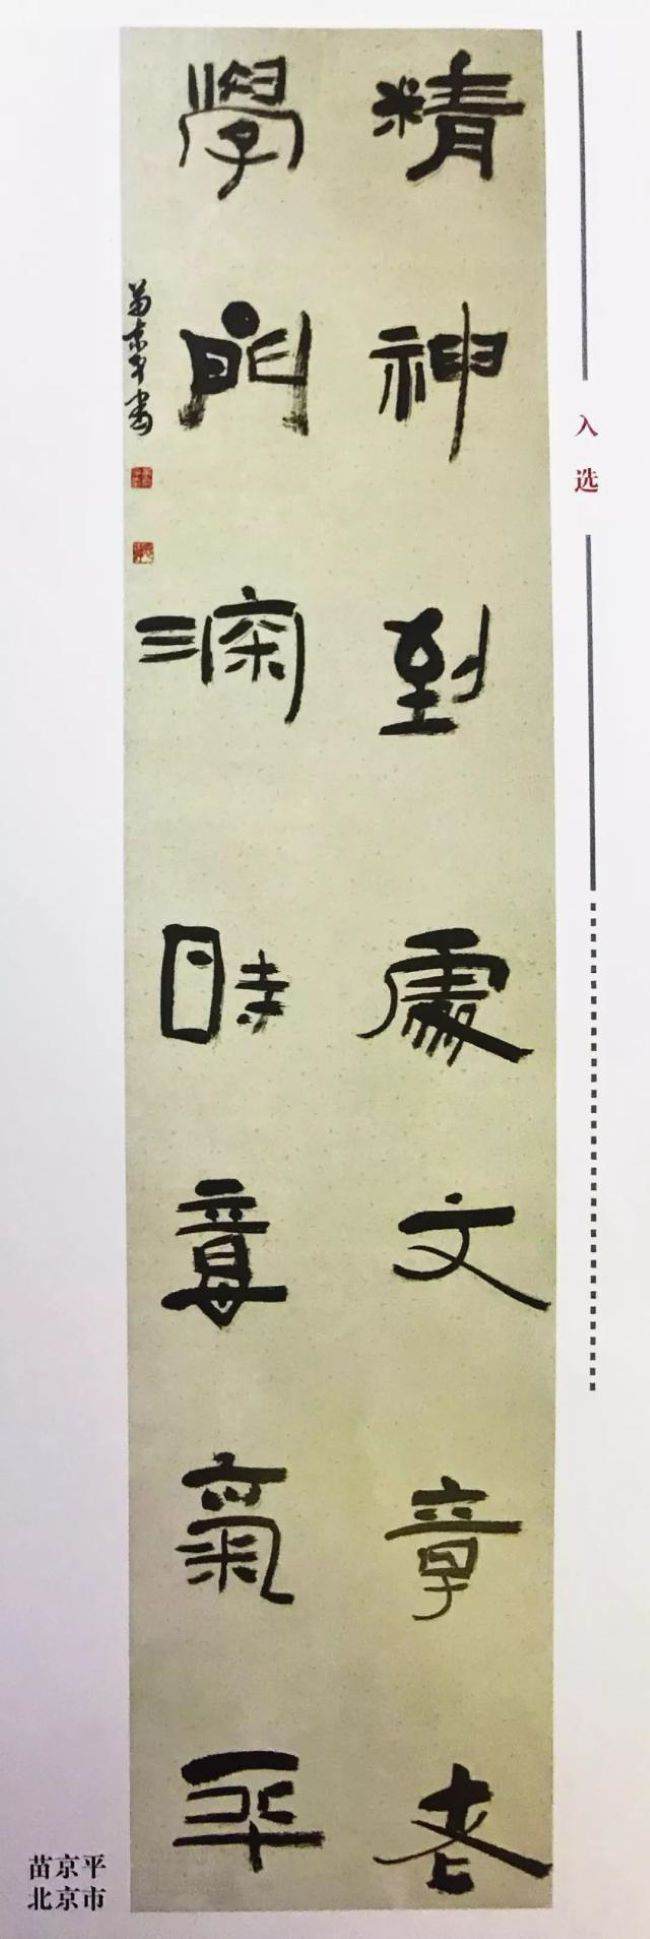 入选
精神到處文章老
學問深時意氣平
苗京平書
苗京平
北京市